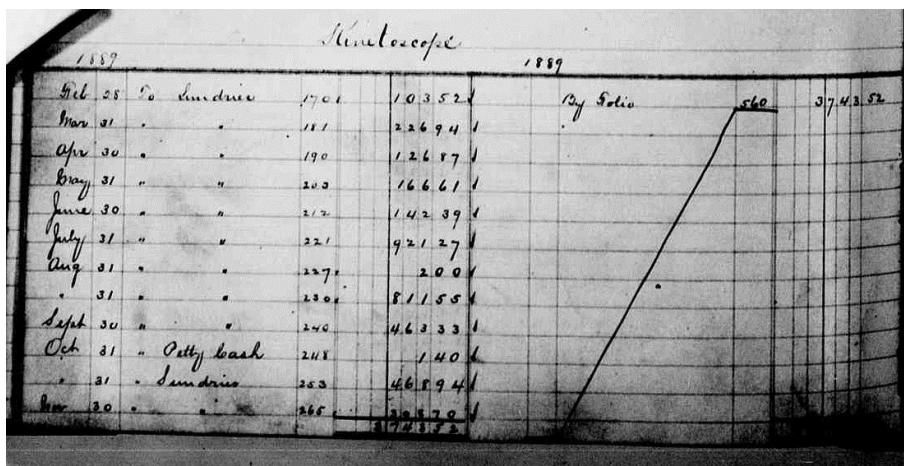 Kinetoscope
1889 1889
Feb 28 To Sundries 170 10352 By Folio 560 3743 52
Mar 31 " " 181 22694
Apr 30 " " 190 12687
May 31 " " 203 16661
June 30 " " 212 14239
July 31 " " 221 92127
Aug 31 " " 227 200
" 31 " " 230 81155
Sept 30 " " 240 46333
Oct 31 " Petty Cash 248 140
" 31 " Sundries 253 46894
Nov 30 " " 265 30870
374352